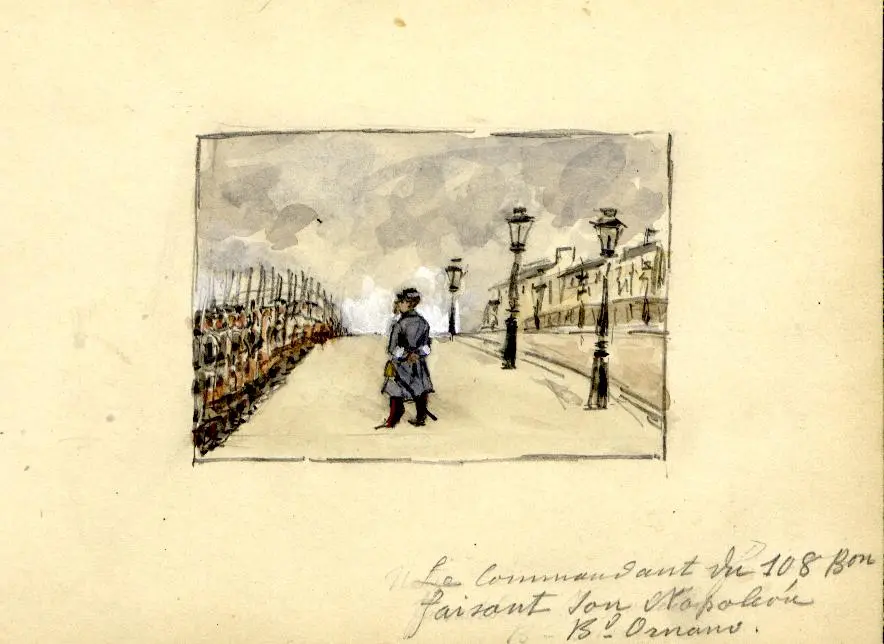 Le Commandant du 108 Bon
faisant son Napoléon
Bd Ornano.